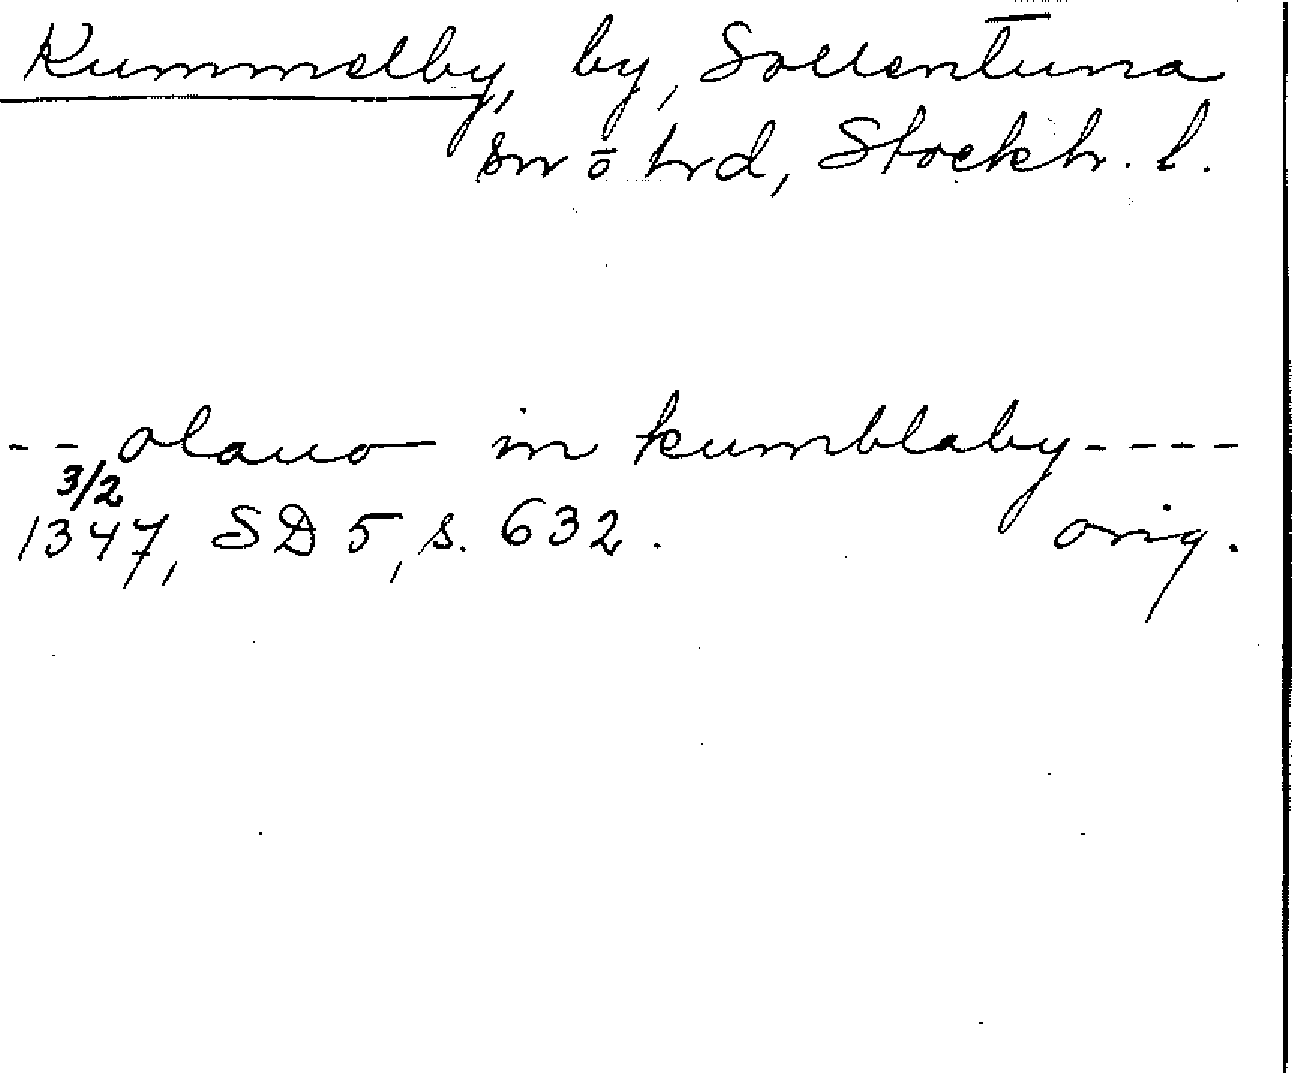 Kummelby, by, Sollentuna
sn o hd, Stockh. l.
-- olauo in kumblaby----
3/2
1347, SD 5, s. 632. orig.